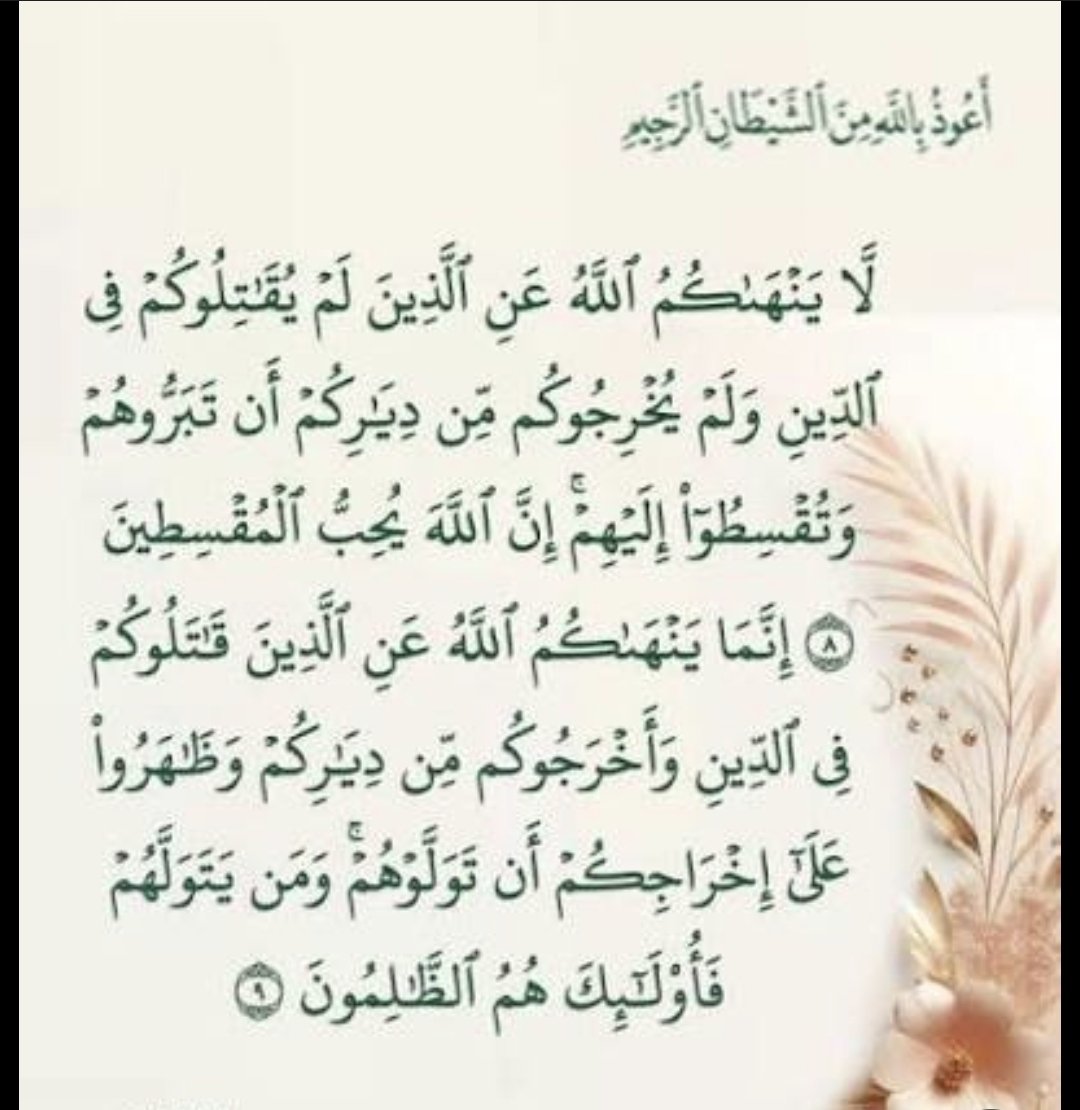 أَعُوذُ بِاللَّهِ مِنَ ٱلشَّيْطَانِ ٱلرَّجِيمِ
لَّا يَنْهَىٰكُمُ ٱللَّهُ عَنِ ٱلَّذِينَ لَمْ يُقَٰتِلُوكُمْ فِى
ٱلدِّينِ وَلَمْ يُخْرِجُوكُم مِّن دِيَٰرِكُمْ أَن تَبَرُّوهُمْ
وَتُقْسِطُوٓا۟ إِلَيْهِمْ ۚ إِنَّ ٱللَّهَ يُحِبُّ ٱلْمُقْسِطِينَ
٨ إِنَّمَا يَنْهَىٰكُمُ ٱللَّهُ عَنِ ٱلَّذِينَ قَٰتَلُوكُمْ
فِى ٱلدِّينِ وَأَخْرَجُوكُم مِّن دِيَٰرِكُمْ وَظَٰهَرُوا۟
عَلَىٰٓ إِخْرَاجِكُمْ أَن تَوَلَّوْهُمْ ۚ وَمَن يَتَوَلَّهُمْ
فَأُو۟لَٰٓئِكَ هُمُ ٱلظَّٰلِمُونَ ٩